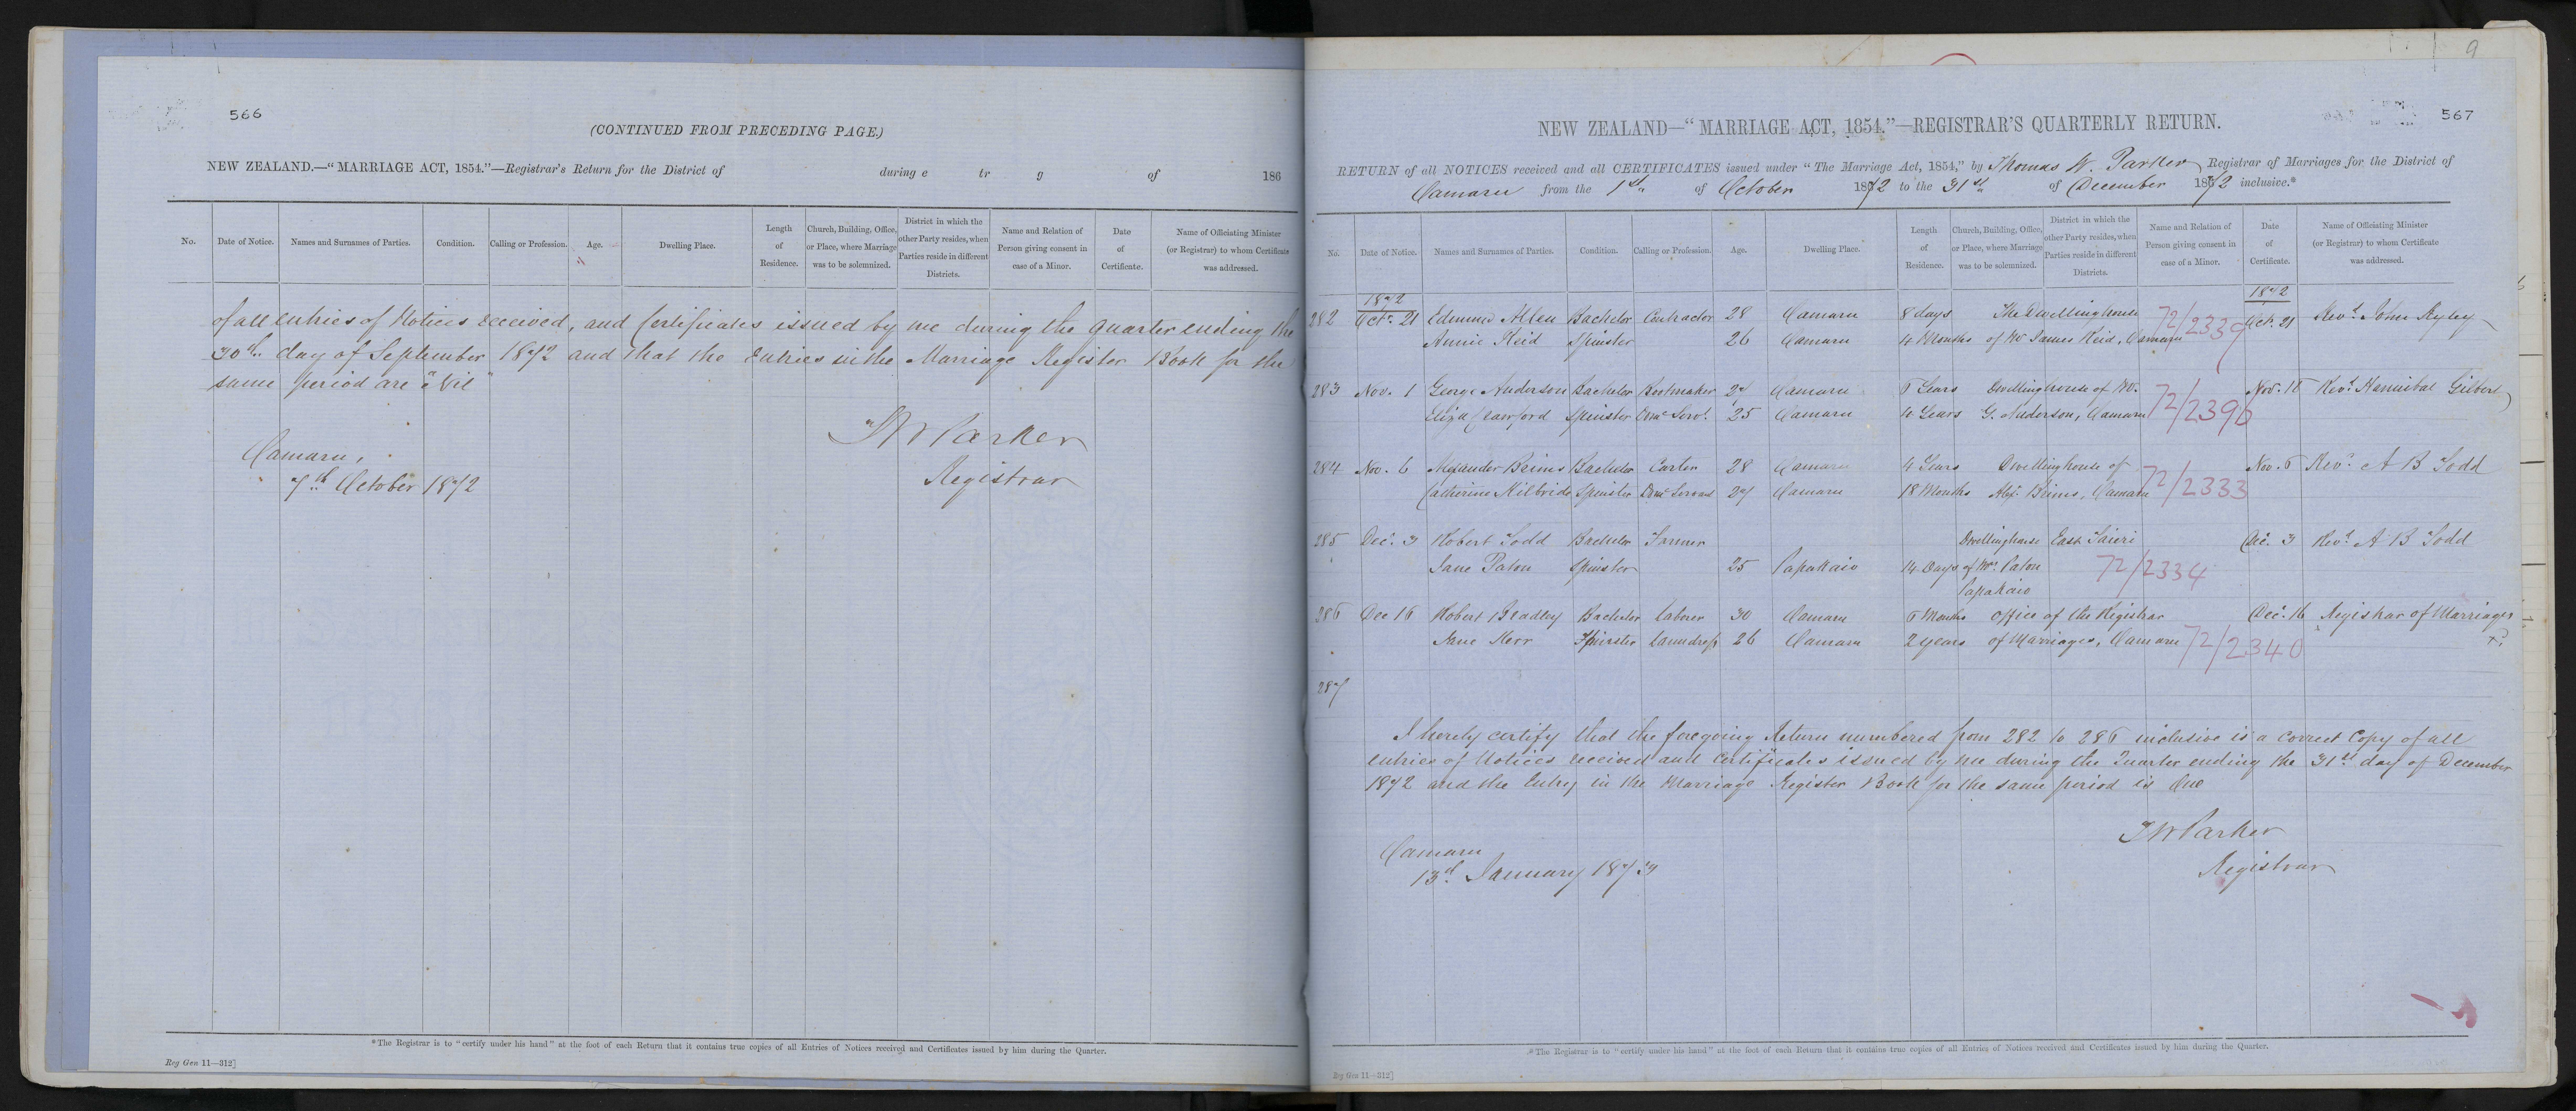 566
(CONTINUED FROM PRECEDING PAGE.)
NEW ZEALAND.—"MARRIAGE ACT, 1854."—Registrar's Return for the District of during e tr g of 186
No. Date of Notice. Names and Surnames of Parties. Condition. Calling or Profession. Age. Dwelling Place. Length of Residence. Church, Building, Office, or Place, where Marriage was to be solemnized. District in which the other Party resides, when Parties reside in different Districts. Name and Relation of Person giving consent in case of a Minor. Date of Certificate. Name of Officiating Minister (or Registrar) to whom Certificate was addressed.
of all entries of Notices received, and Certificates issued by me during the quarter ending the
30th day of September 1872 and that the entries in the Marriage Register Book for the
same period are "Nil"
T W Parker
Registrar
Oamaru,
7th October 1872
*The Registrar is to "certify under his hand" at the foot of each Return that it contains true copies of all Entries of Notices received and Certificates issued by him during the Quarter.
Reg Gen 11—312]
9
567
NEW ZEALAND—"MARRIAGE ACT, 1854."—REGISTRAR'S QUARTERLY RETURN.
RETURN of all NOTICES received and all CERTIFICATES issued under "The Marriage Act, 1854," by Thomas W. Parker Registrar of Marriages for the District of
Oamaru from the 1st of October 1872 to the 31st of December 1872 inclusive.*
No. Date of Notice. Names and Surnames of Parties. Condition. Calling or Profession. Age. Dwelling Place. Length of Residence. Church, Building, Office, or Place, where Marriage was to be solemnized. District in which the other Party resides, when Parties reside in different Districts. Name and Relation of Person giving consent in case of a Minor. Date of Certificate. Name of Officiating Minister (or Registrar) to whom Certificate was addressed.
1872 1872
282 Oct. 21 Edmund Allen Bachelor Contractor 28 Oamaru 8 days The Dwelling house 72/2339 Oct. 21 Revd. John Ryley
Annie Reid Spinster 26 Oamaru 4 Months of Mr James Reid, Oamaru
283 Nov. 1 George Anderson Bachelor Bootmaker 27 Oamaru 6 Years Dwelling house of Mr. Nov. 18 Revd. Hannibal Gilbert
Eliza Crawford Spinster Domc Servt. 25 Oamaru 4 Years G. Anderson, Oamaru 72/2396
284 Nov. 6 Alexander Brims Bachelor Carter 28 Oamaru 4 Years Dwelling house of Nov. 6 Revd. A B Todd
Catherine Kilbride Spinster Domc Servant 27 Oamaru 18 Months Alex. Brims, Oamaru 72/2333
285 Dec. 3 Robert Todd Bachelor Farmer Dwelling house East Taieri Dec. 3 Revd. A B Todd
Jane Paton Spinster 25 Papakaio 14 Days of Mr. Paton 72/2334
Papakaio
286 Dec 16 Robert Bradley Bachelor Laborer 30 Oamaru 6 Months Office of the Registrar Dec. 16 Registrar of Marriages
Jane Kerr Spinster Laundress 26 Oamaru 2 years of Marriages, Oamaru 72/2340
287
I hereby certify that the foregoing Return numbered from 282 to 286 inclusive is a correct Copy of all
entries of Notices received and Certificates issued by me during the Quarter ending the 31st day of December
1872 and the Entry in the Marriage Register Book for the same period is One
T W Parker
Registrar
Oamaru
13th January 1873
*The Registrar is to "certify under his hand" at the foot of each Return that it contains true copies of all Entries of Notices received and Certificates issued by him during the Quarter.
Reg Gen 11—312]